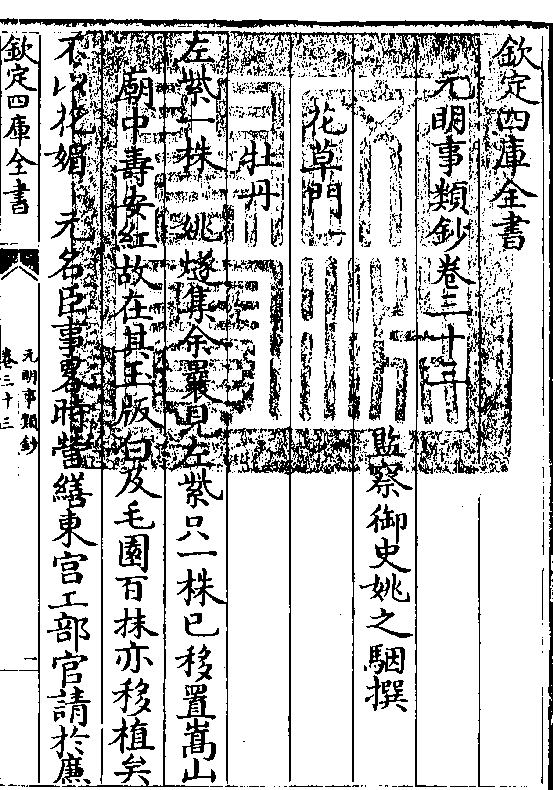 欽定四庫全書
元明事類鈔卷三十三
監察御史姚之駰撰
花草門一
牡丹
左紫一株　姚燧集余曩見左紫只一株已移置嵩山
廟中壽安紅故在其玉版白及毛園百抹亦移植矣
不以花媚　元名臣事畧時營繕東宫工部官請於廉
欽定四庫全書
元明事類鈔
卷三十三
一